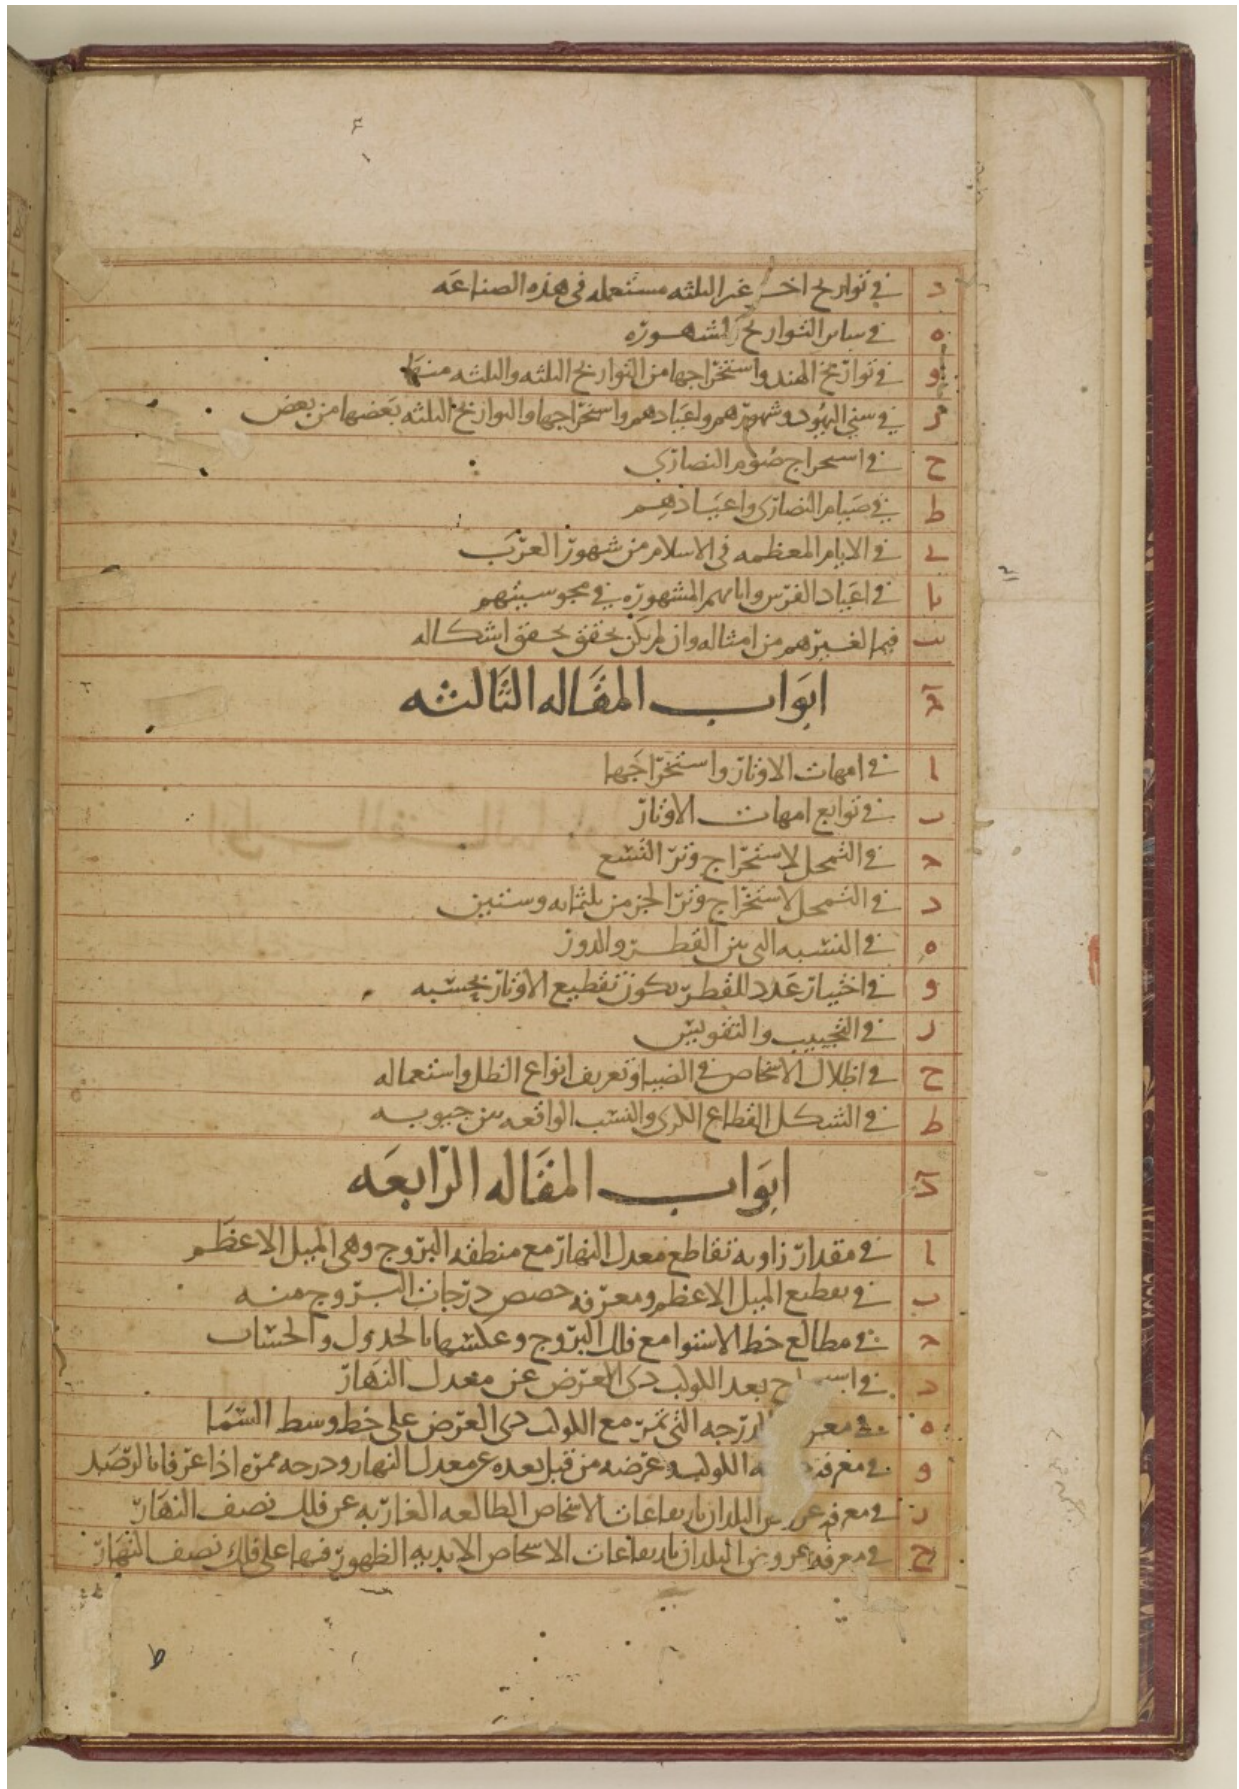 د في تواريخ اخر غير الثلثه مستعمله في هذه الصناعه
ه في ساير التواريخ المشهوره
و في تواريخ الهند واستخراجها من التواريخ الثلثه والثلثه منها
ز في سني اليهود وشهورهم واعيادهم واستخراجها والتواريخ الثلثه بعضها من بعض
ح في استخراج صوم النصارى
ط في صيام النصارى واعيادهم
ى في الايام المعظمه في الاسلام من شهور العرب
يا في اعياد الفرس وايامهم المشهوره في مجوسيتهم
يب فيما لغيرهم من امثاله وان لم يكن تحقق تحقق اشكاله
ج ابواب المقاله الثالثه
ا في امهات الاوتار واستخراجها
ب في توابع امهات الاوتار
ج في التمحل لاستخراج وتر التسع
د في التمحل لاستخراج وتر الجز من ثلثمايه وستين
ه في النسبه التي بين القطر والدور
و في اختيار عدد للقطر يكون تقطيع الاوتار بحسبه
ز في التجييب والتقويس
ح في اظلال الاشخاص في الضيا وتعريف انواع الظل واستعماله
ط في الشكل القطاع الكرى والنسب الواقعه بين جيوبه
د ابواب المقاله الرابعه
ا في مقدار زاويه تقاطع معدل النهار مع منطقه البروج وهي الميل الاعظم
ب في تقطيع الميل الاعظم ومعرفه حصص درجات البروج منه
ج في مطالع خط الاستوا مع فلك البروج وعكسها بالجدول والحساب
د في بعد الكوكب ذي العرض عن معدل النهار
ه في الدرجه التي تمر مع الكوكب ذي العرض على خط وسط السما
و في معرفه الكوكب وعرضه من قبل بعده عن معدل النهار ودرجه ممره اذا عرفا بالرصد
ز في معرفه عروض البلدان بارتفاعات الاشخاص الطالعه الغاربه عن فلك نصف النهار
ح في معرفه عروض البلدان بارتفاعات الاشخاص الابديه الظهور فيها على فلك نصف النهار